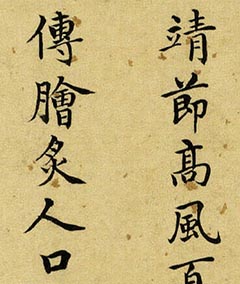 靖節高風百
傳膾炙人口